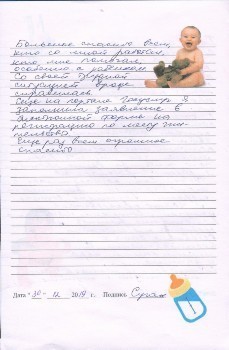 Большое спасибо всем,
кто со мной работал,
кто мне помогал,
особенно с ребенком
Со своей трудной
ситуацией вроде
справилась.
Еще на портале Госуслуг я
заполнила заявление в
электронной форме на
регистрацию по месту жи-
тельства.
Еще раз всем огромное
спасибо
Дата "30" 12 2019 г. Подпись